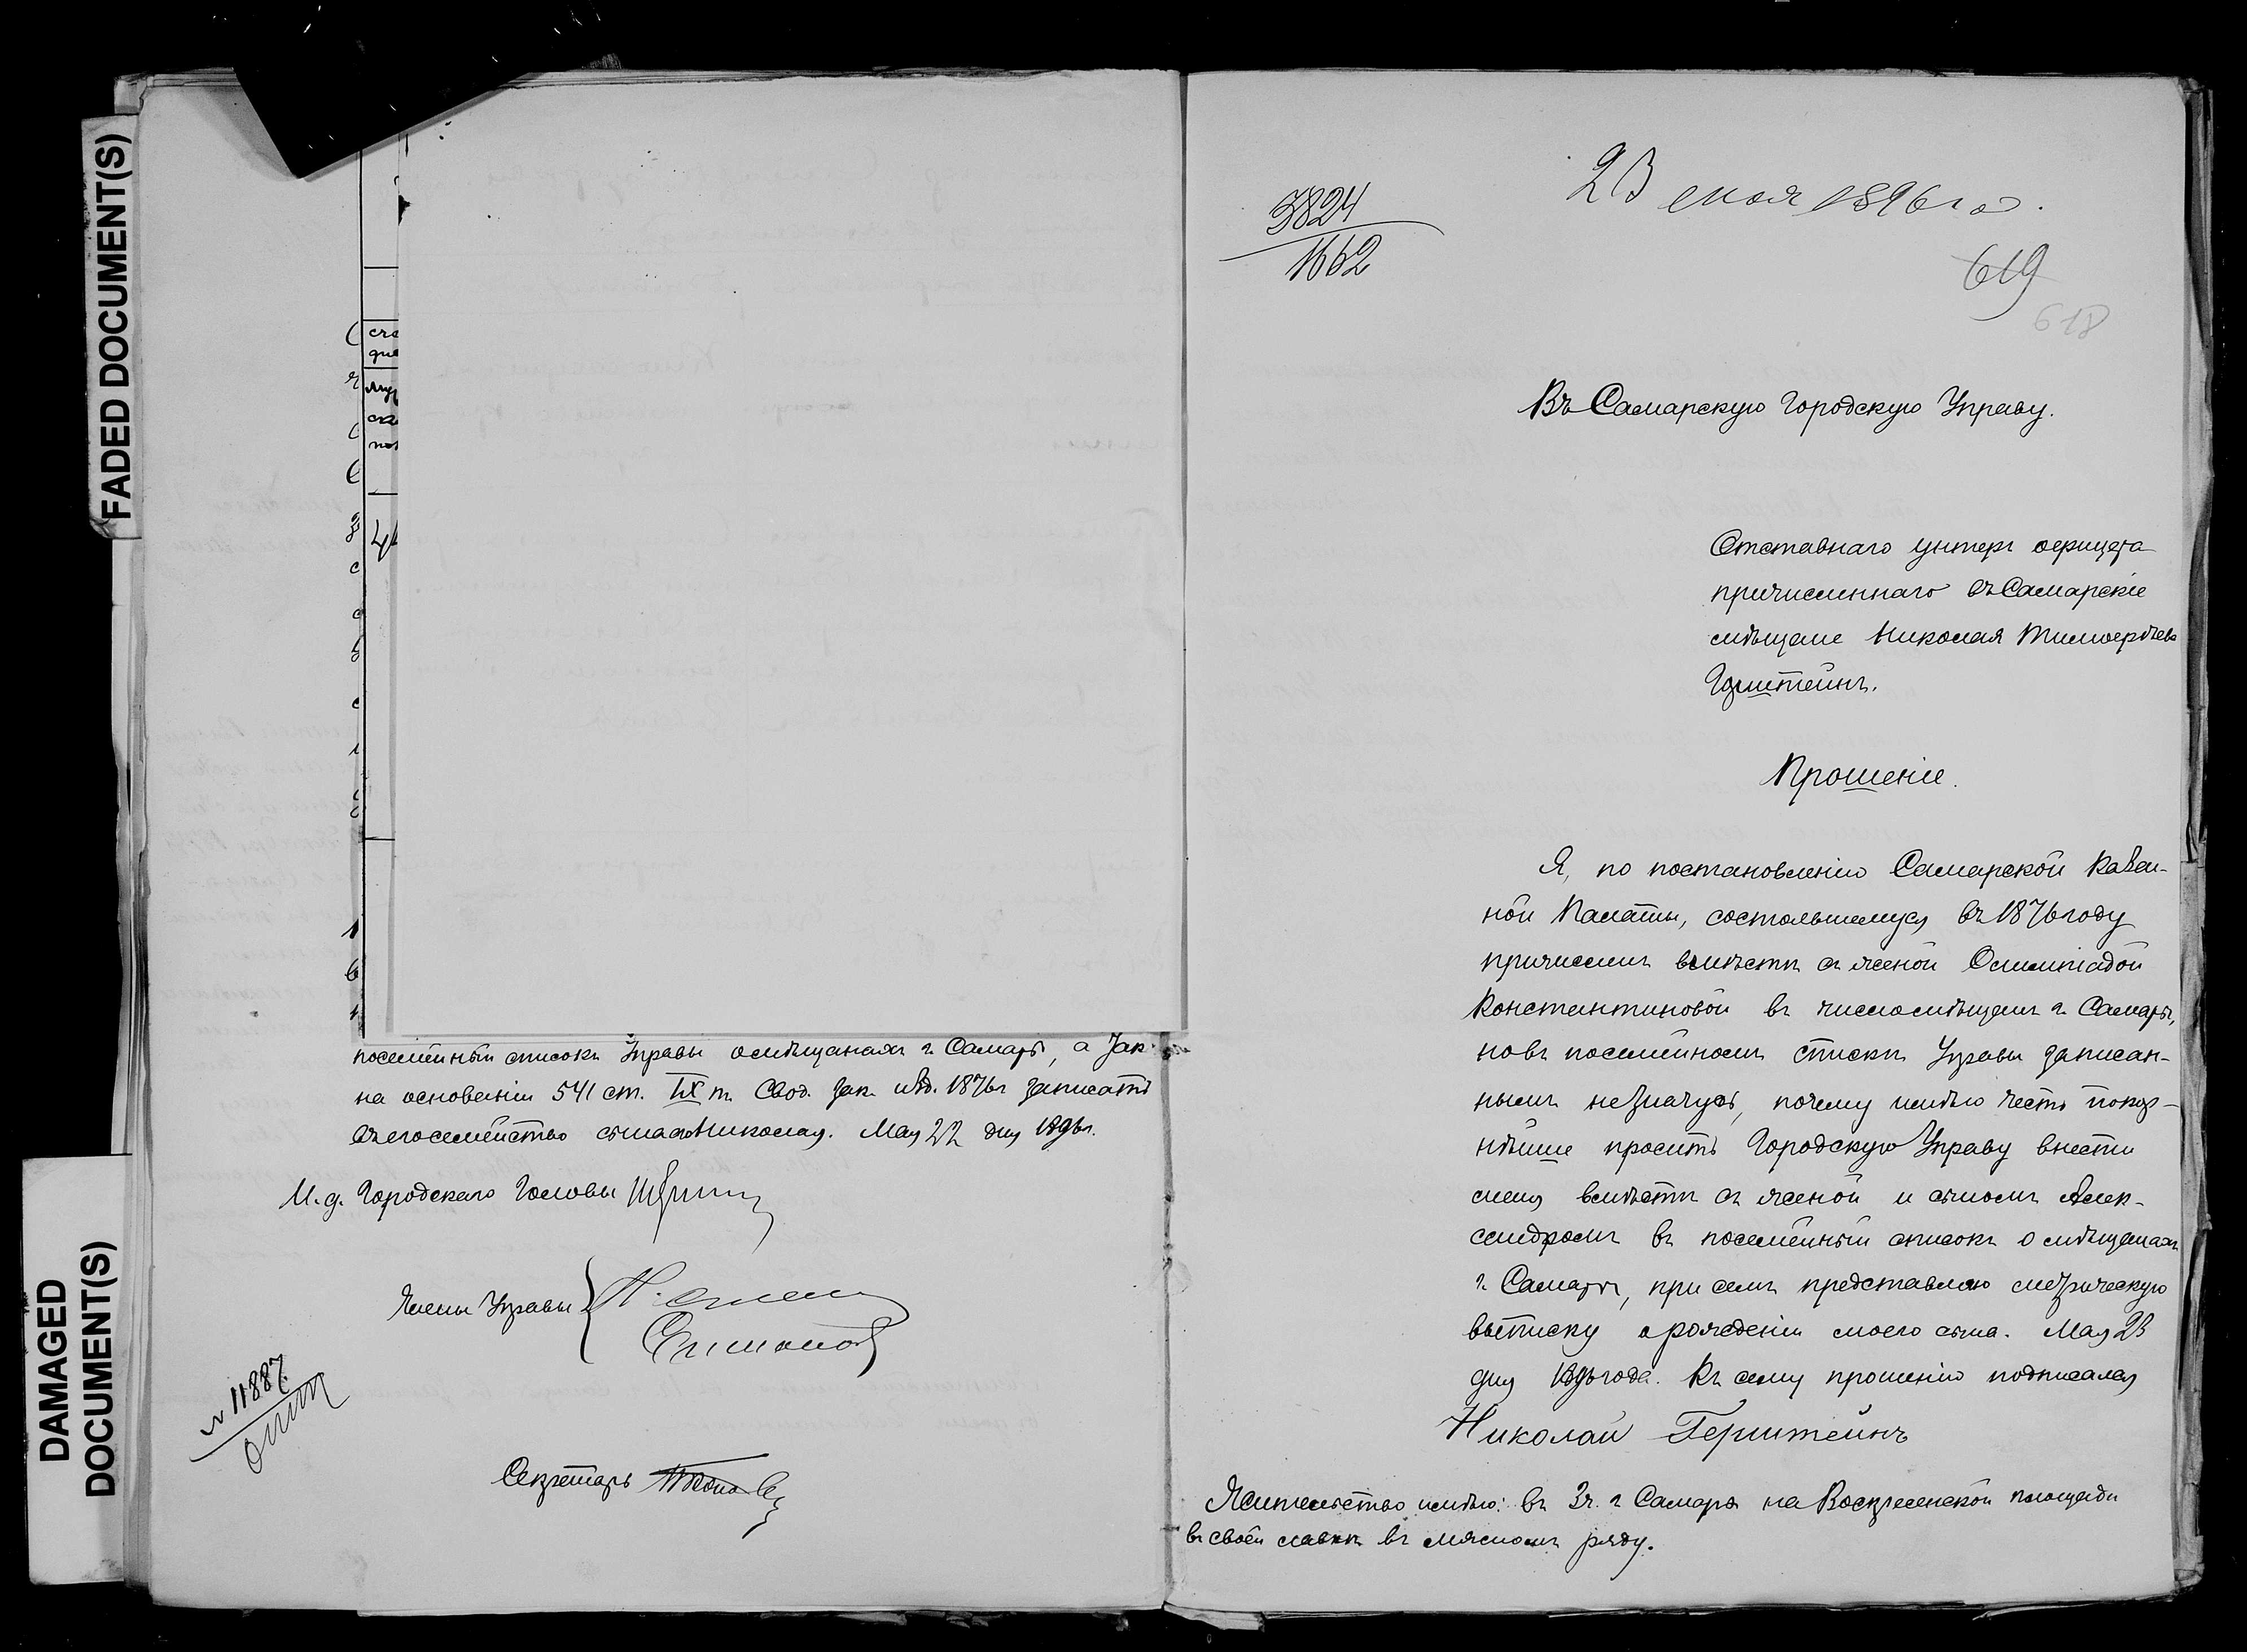 FADED DOCUMENT(S)
DAMAGED
DOCUMENT(S)
посемейный списокъ Управы о мѣщанахъ г. Самары, а
на основаніи 541 ст. IX т. Свод. Зак. изд. 1876г записать
въ его семейство сына его Николая. Мая 22 дня 1896г.
И. д. Городскаго Головы
Члены Управы
Секретарь
№ 11887
23 мая 1896 го
3824
1662
619
618
Въ Самарскую Городскую Управу.
Отставнаго унтеръ офицера
причисленнаго въ Самарскіе
мѣщане Николая Тимофѣева
Герштейнъ.
Прошеніе.
Я, по постановленію Самарской Казен-
ной Палаты, состоявшемуся въ 1876 году
причисленъ вмѣстѣ съ женой Олимпіадой
Константиновой въ число мѣщанъ г. Самары,
но въ посемейномъ спискѣ Управы записан-
нымъ не значусь, почему имѣю честь покор-
нѣйше просить Городскую Управу внести
меня вмѣстѣ съ женой и сыномъ Алек-
сандромъ въ посемейный списокъ о мѣщанахъ
г. Самары, при семъ представляю метрическую
выписку о рожденіи моего сына. Мая 23
дня 1896 года. Къ сему прошенію подписался
Николай Герштейнъ
Жительство имѣю: въ 3 ч. г Самары на Воскресенской площади
въ своей лавкѣ въ мясномъ ряду.